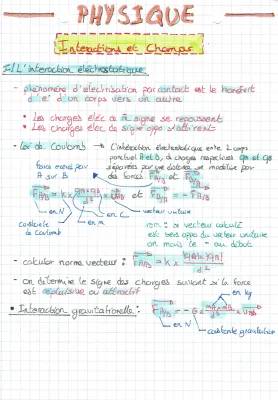 PHYSIQUE
Interactions et Champs
I/ L'interaction électrostatique
- phénomène d'électrisation par contact est le transfert
d'e⁻ d'un corps vers un autre
• Les charges élec de m̂ signe se repoussent
• Les charges élec de signe opp s'attirent
- Loi de Coulomb → L'interaction électrostatique entre 2 corps
ponctuel A et B, de charges respectives qA et qB
séparées par une distance se modélise par
des forces F A/B et F B/A
force exercée par
A sur B
F A/B = k × qA×qB / d² × u AB
en N
en C
en m
vecteur unitaire
constante
de Coulomb
rem : si vecteur calculé
est sens opp du vecteur unitaire
on met le - au début
- calculer norme vecteur : F A/B = k × |qA×qB| / d²
- on détermine le signe des charges suivant si la force
est répulsive ou attractif
• Interaction gravitationnelle :
F A/B = - G × mA×mB / d² × u AB
en kg
en N
constante gravitation